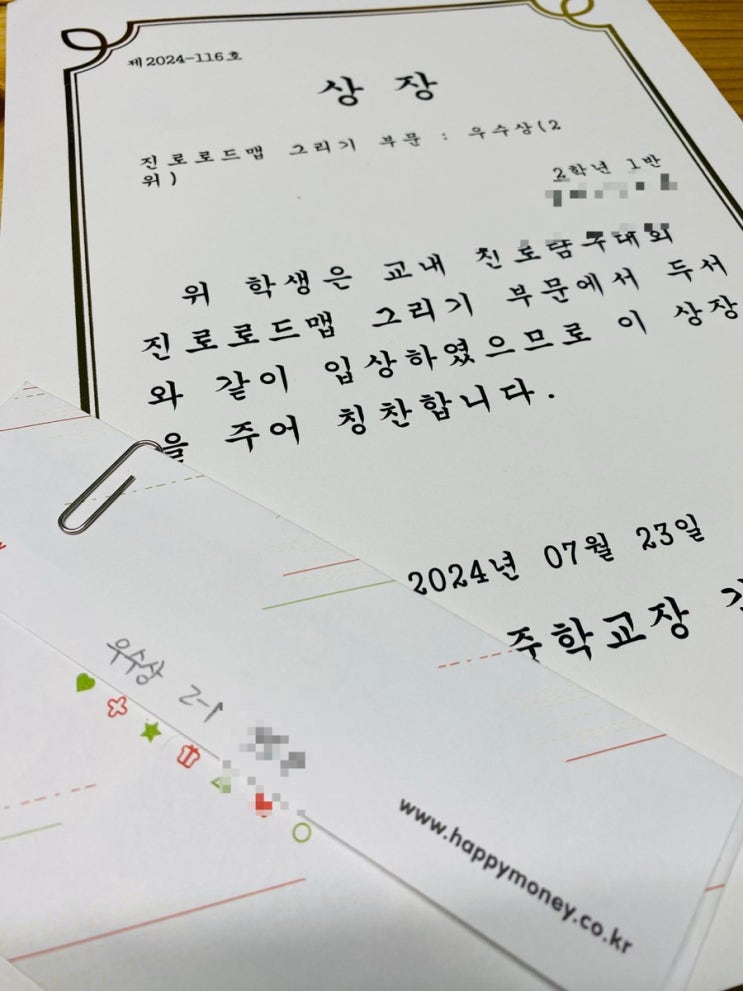 제2024-116호
상 장
진로로드맵 그리기 부문 : 우수상(2
위)
2학년 1반
위 학생은 교내
진로로드맵 그리기 부문에서 두서
와 같이 입상하였으므로 이 상장
을 주어 칭찬합니다.
2024년 07월 23일
중학교장
우수상 2-1
www.happymoney.co.kr